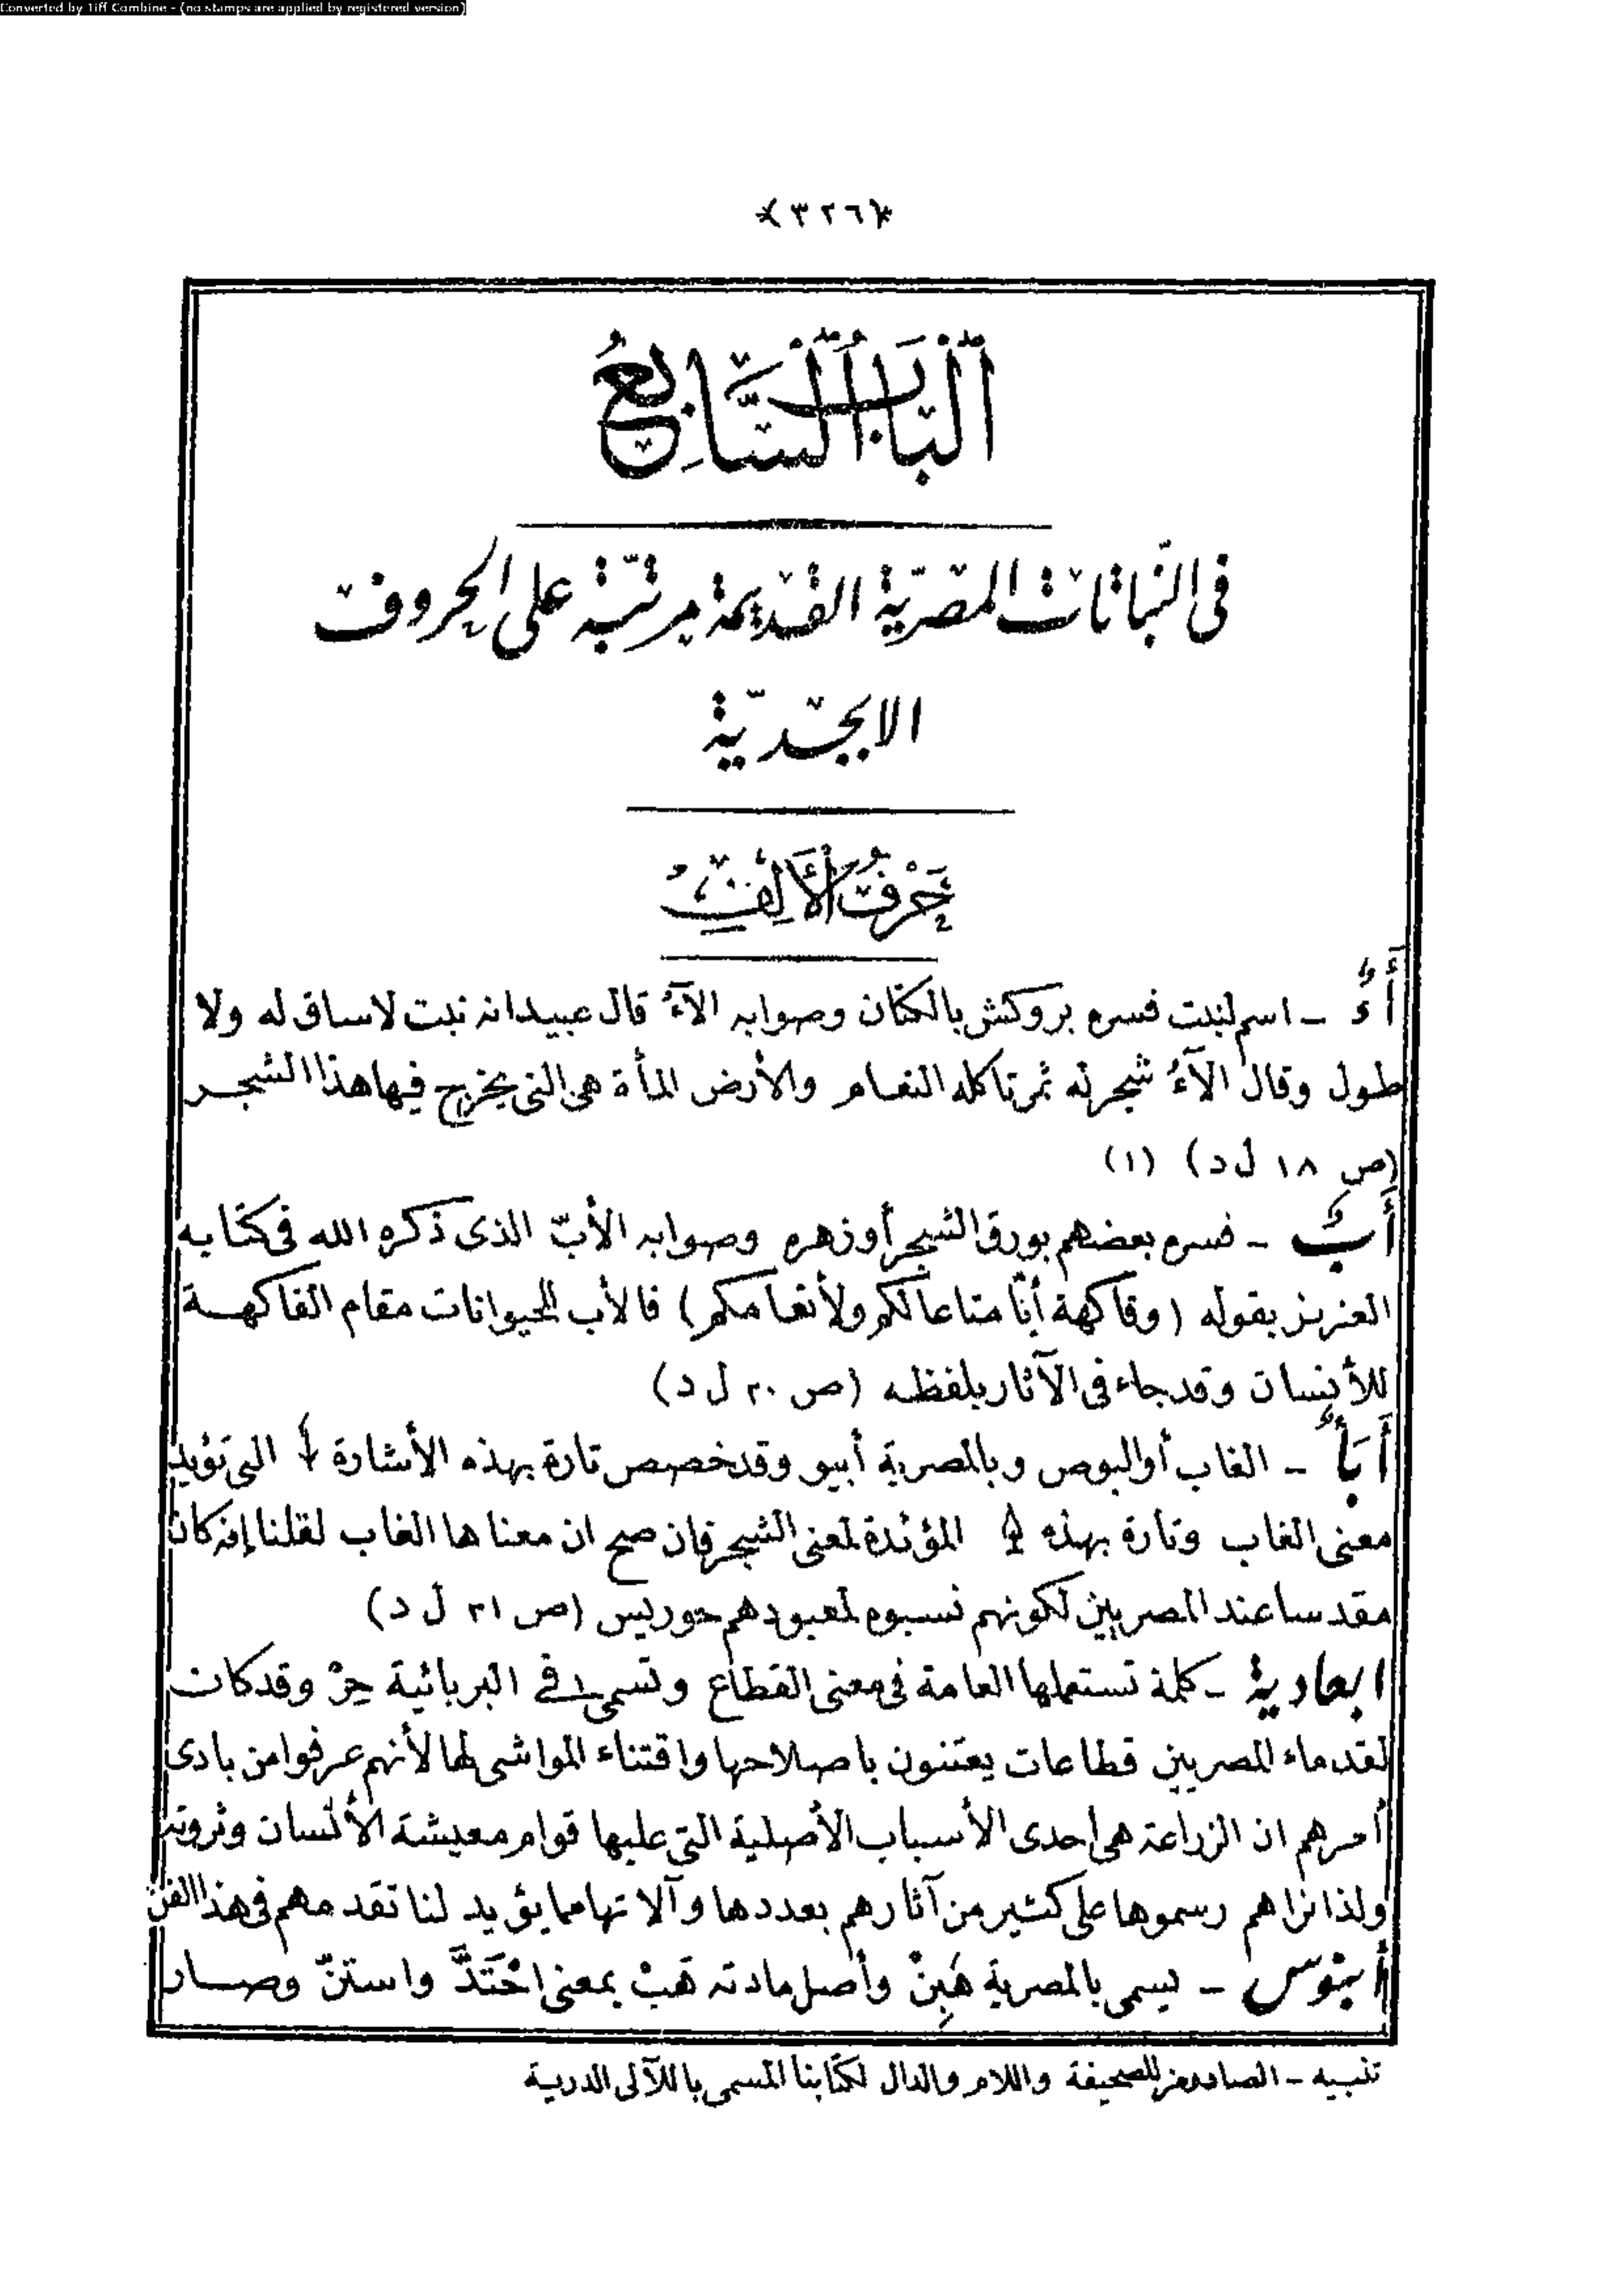 Converted by Tiff Combine - (no stamps are applied by registered version)
﴿٣٢٦﴾
اَلْبَابُ السَّابِعُ
فى النباتات المصرية القديمة مرتبة على الحروف
الابجدية
حَرْفُ الْأَلِفِ
أَءُ – اسم لنبت فسره بروكش بالكتان وصوابه الآءُ قال عبيد انه نبت لاساق له ولا
طول وقال الآءُ شجر له ثمر تاكله النعام والأرض المأة هى التى يخرج فيها هذا الشجر
(ص ١٨ ل د) (١)
أَبُ – فسره بعضهم بورق الشجر أوزهره وصوابه الأبّ الذى ذكره الله فى كتابه
العزيز بقوله (وفاكهة أبّا متاعا لكم ولأنعامكم) فالأب للحيوانات مقام الفاكهة
للأنسان وقد جاء فى الآثار بلفظه (ص ٢٠ ل د)
أَبَأُ – الغاب أو البوص وبالمصرية أبيو وقد خصص تارة بهذه الأشارة التى تؤيد
معنى الغاب وتارة بهذه المؤيدة لمعنى الشجر فان صح ان معناها الغاب لقلنا إنه كان
مقدسا عند المصريين لكونهم نسبوه لمعبودهم حوريس (ص ٢١ ل د)
ابعادية – كلمة تستعملها العامة فى معنى القطاع وتسمى فى البربائية حِرْ وقد كان
لقدماء المصريين قطاعات يعتنون باصلاحها واقتناء المواشى لها لأنهم عرفوا من بادى
أمرهم ان الزراعة هى احدى الأسباب الأصلية التى عليها قوام معيشة الأنسان وثروته
ولذا نراهم رسموها على كثير من آثارهم بعددها وآلاتها مما يؤيد لنا تقدمهم فى هذا الفن
أبنوس – يسمى بالمصرية هَبِنْ وأصل مادته هَبْ بمعنى احْتَدَّ واستنّ وصار
تنبيه – الصاد رمز للصحيفة واللام والدال لكتابنا المسمى باللآلى الدرية